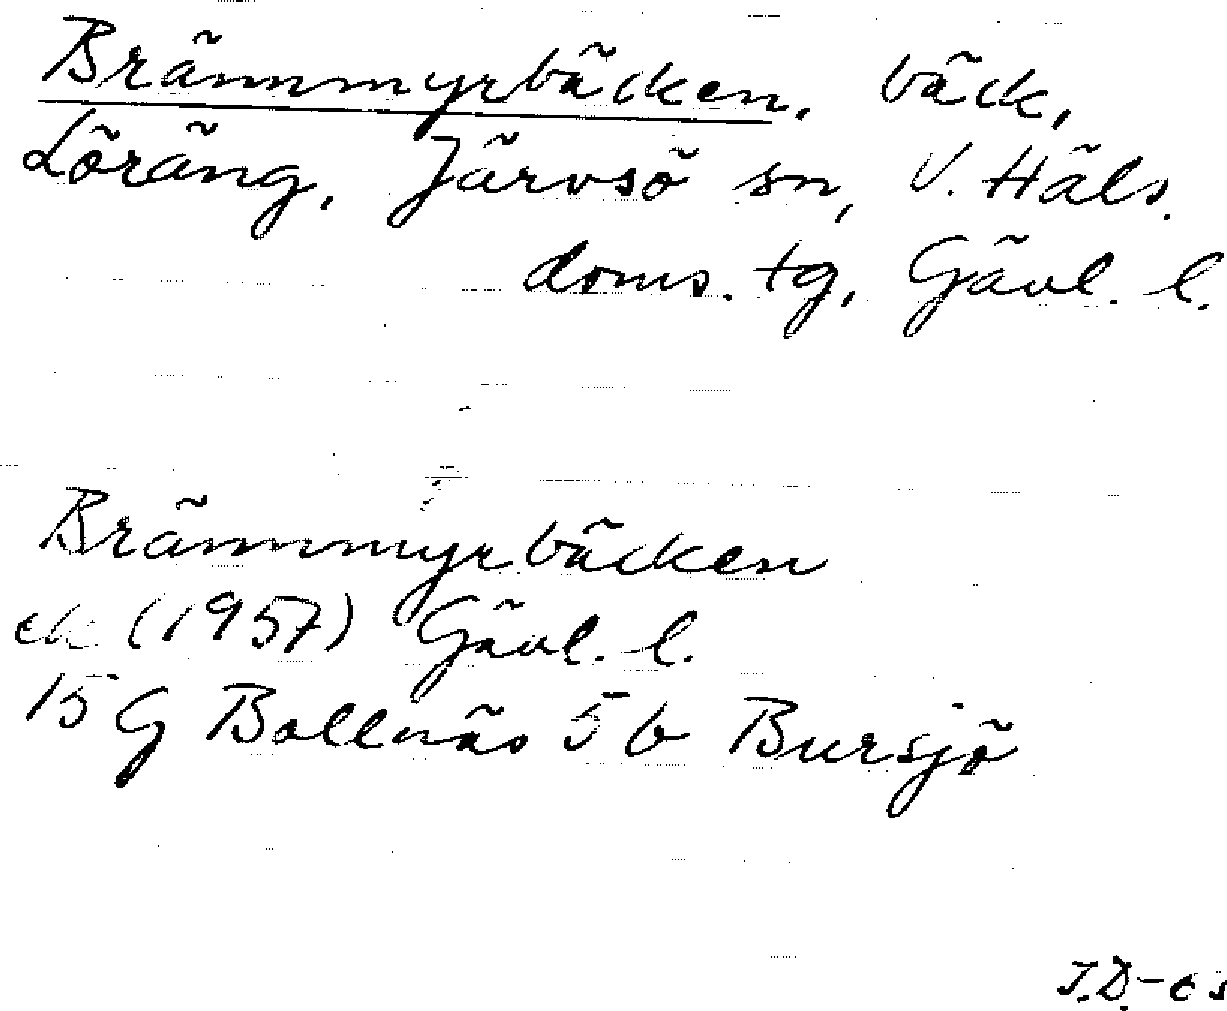 Brännmyrbäcken, bäck,
Löräng, Järvsö sn, V. Häls.
doms. tg, Gävl. l.
Brännmyrbäcken
ek (1957) Gävl. l.
15 G Bollnäs 5 b Bursjö
J.D.-